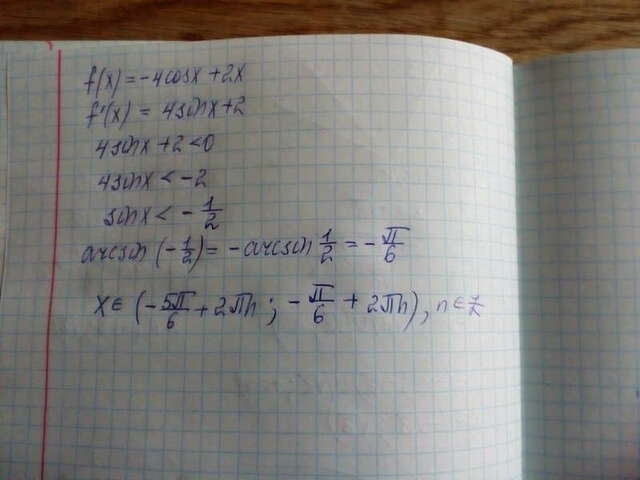 f(x) = -4cosx + 2x
f'(x) = 4sinx + 2
4sinx + 2 < 0
4sinx < -2
sinx < -1/2
arcsin(-1/2) = -arcsin 1/2 = -π/6
x ∈ (-5π/6 + 2πn; -π/6 + 2πn), n ∈ Z